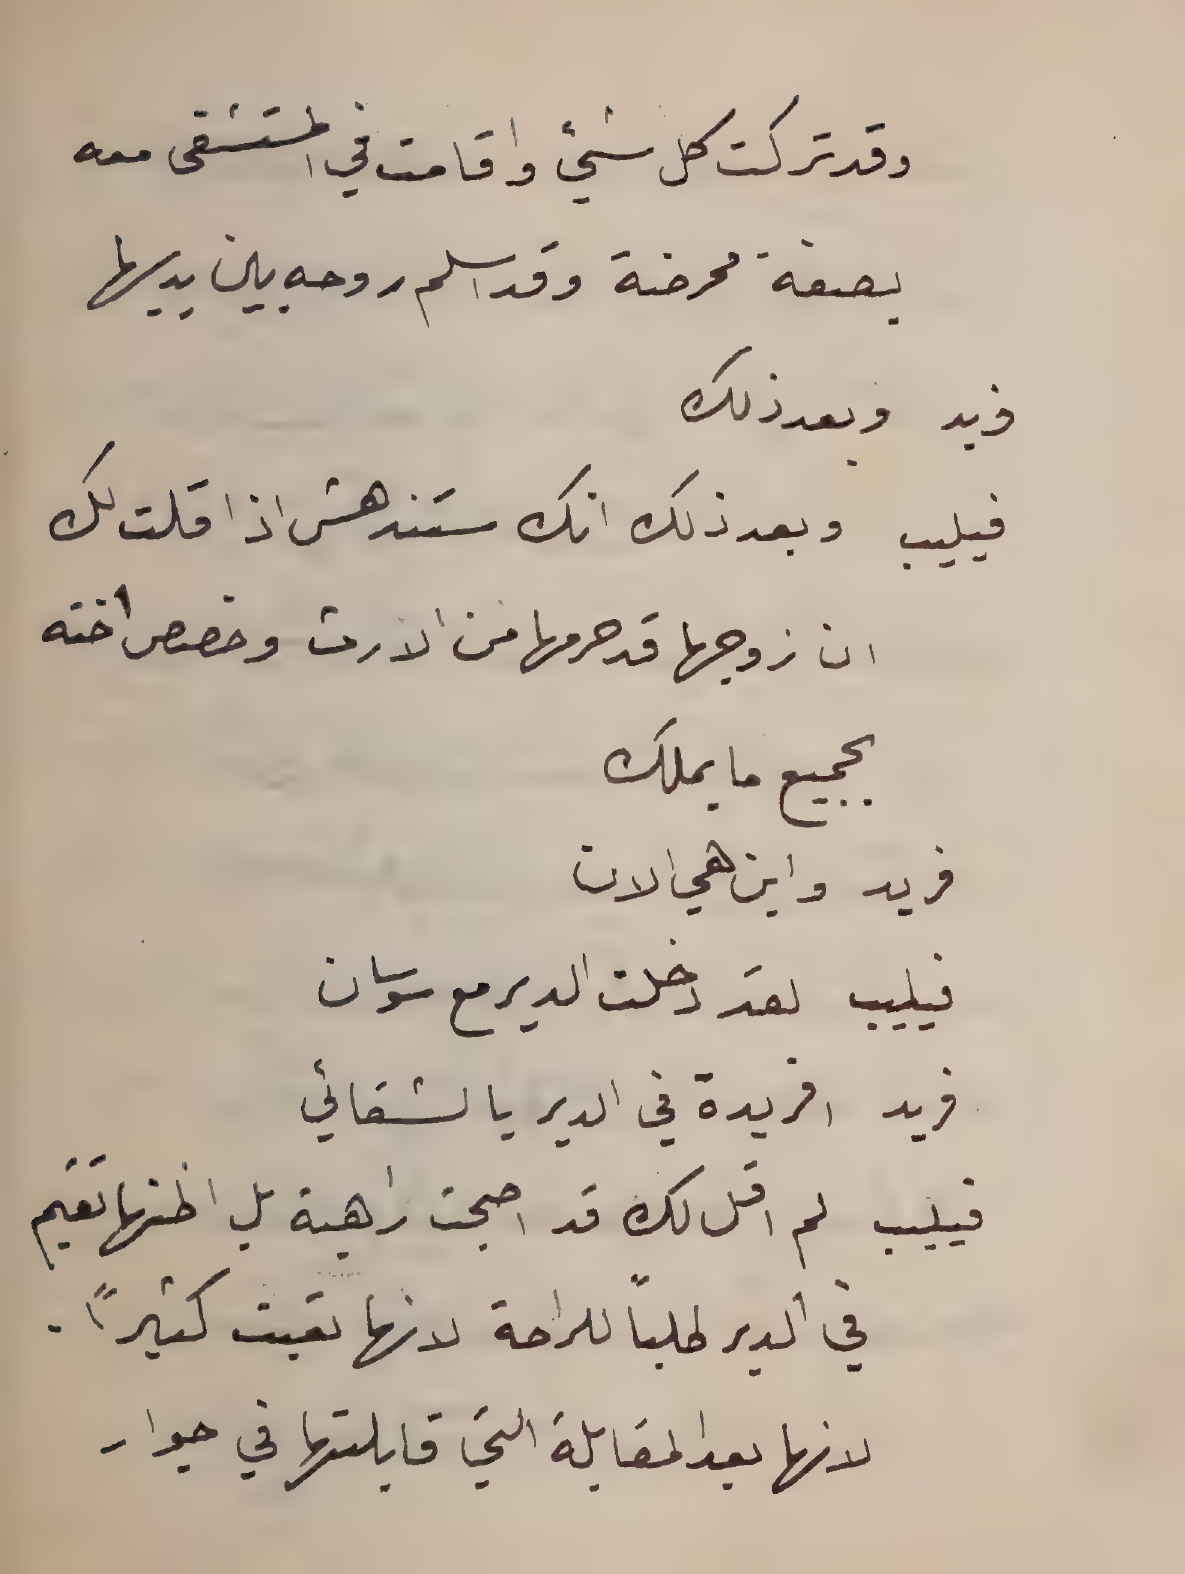 وقد تركت كل شيئ واقامت في المستشفى معه
بصفة ممرضة وقد اسلم روحه بين يديها
فريد وبعد ذلك
فيليب وبعد ذلك انك ستندهش اذا قلت لك
ان زوجها قد حرمها من الارث وخصص اخته
بجميع ما يملك
فريد واين هي الان
فيليب لقد دخلت الدير مع سوسان
فريد افريدة في الدير يا لشقائي
فيليب لم اقل لك قد اصبحت راهبة بل اظنها تقيم
في الدير طلباً للراحة لانها تعبت كثيراً.
لانها بعد المقابلة التي قابلتها في جوار